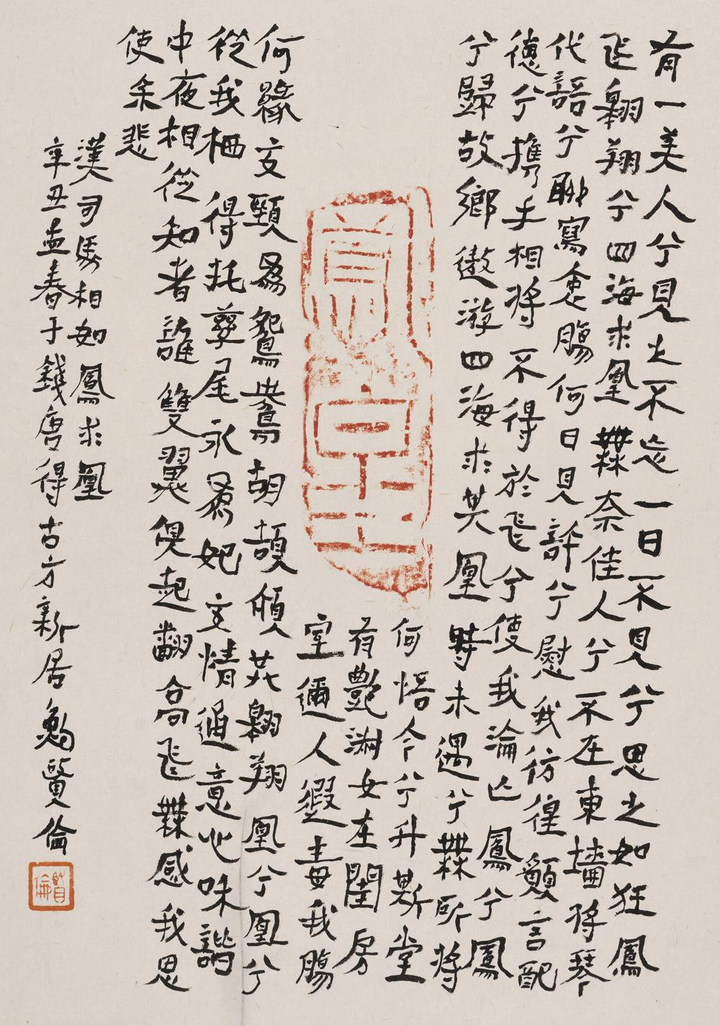 有一美人兮見之不忘一日不見兮思之如狂鳳
飛翱翔兮四海求凰無奈佳人兮不在東墻將琴
代語兮聊寫衷腸何日見許兮慰我彷徨願言配
德兮攜手相將不得於飛兮使我淪亡鳳兮鳳
兮歸故鄉遨游四海求其凰時未遇兮無所將
何悟今兮升斯堂
有艷淑女在閨房
室邇人遐毒我腸
何緣交頸為鴛鴦胡頡頏共翱翔凰兮凰兮
從我栖得托孳尾永為妃交情通意心咊諧
中夜相從知者誰雙翼俱起翻高飛無感我思
使余悲
漢司馬相如鳳求凰
辛丑孟春于錢唐得古方新居鮑賢倫
賢倫